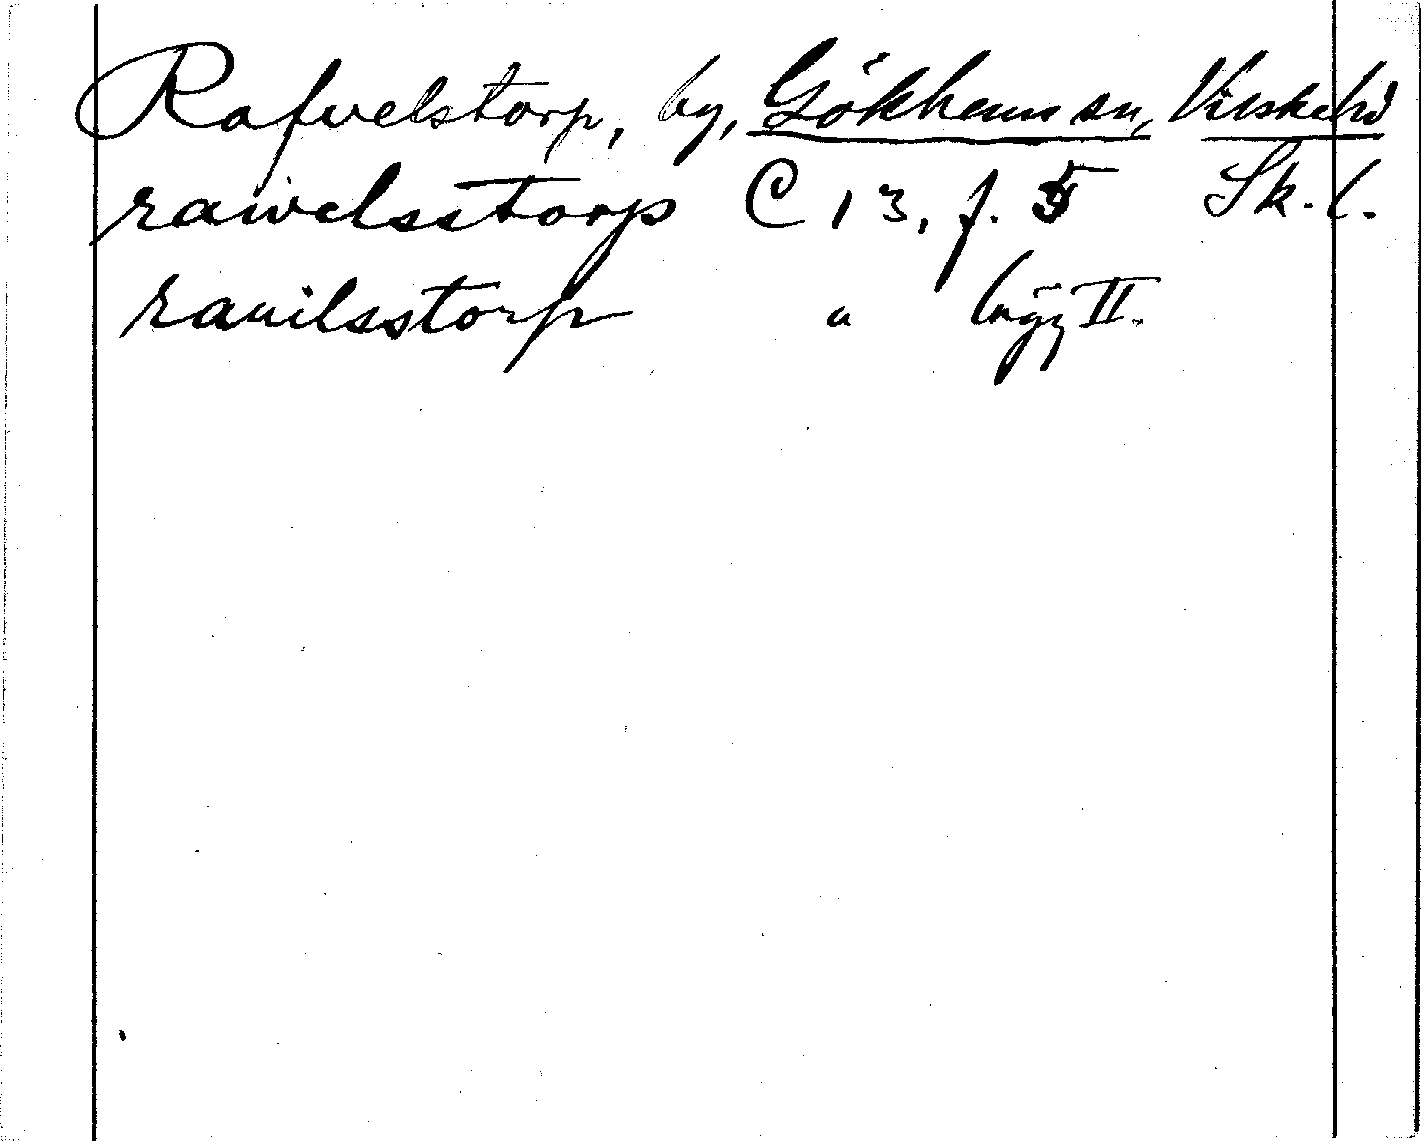 Rafvelstorp, by, Gökhems sn, Vilske hd
rawelsstorp C 13, f. 5 Sk. l.
rauilsstorp " II.